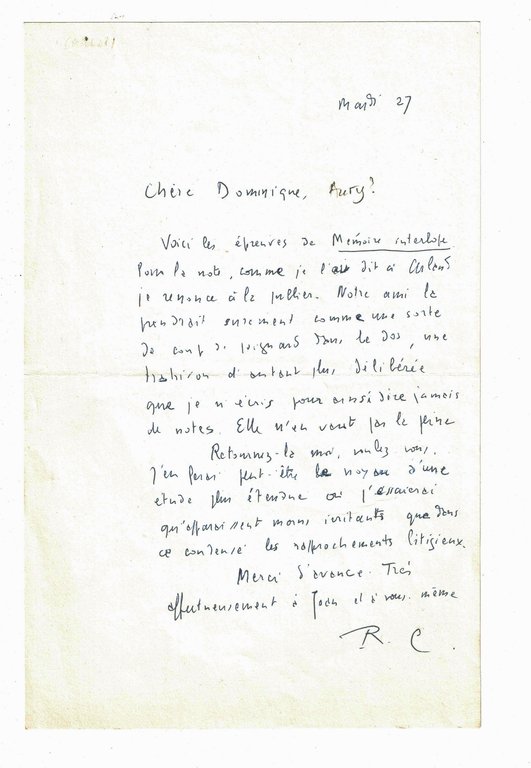 Mardi 27
Chère Dominique, Aury?
Voici les épreuves de Mémoire interlope
Pour la note, comme je l'ai dit à Arland
je renonce à la publier. Notre ami la
prendrait surement comme une sorte
de coup de poignard dans le dos, une
trahison d'autant plus délibérée
que je n'écris pour ainsi dire jamais
de notes. Elle n'en vaut pas la peine
Retournez-la moi, voulez vous.
J'en ferai peut-être le noyau d'une
étude plus étendue où j'essaierai
qu'apparaissent moins irritants que dans
ce condensé les rapprochements litigieux.
Merci d'avance. Très
affectueusement à Jean et à vous-même
R. C.